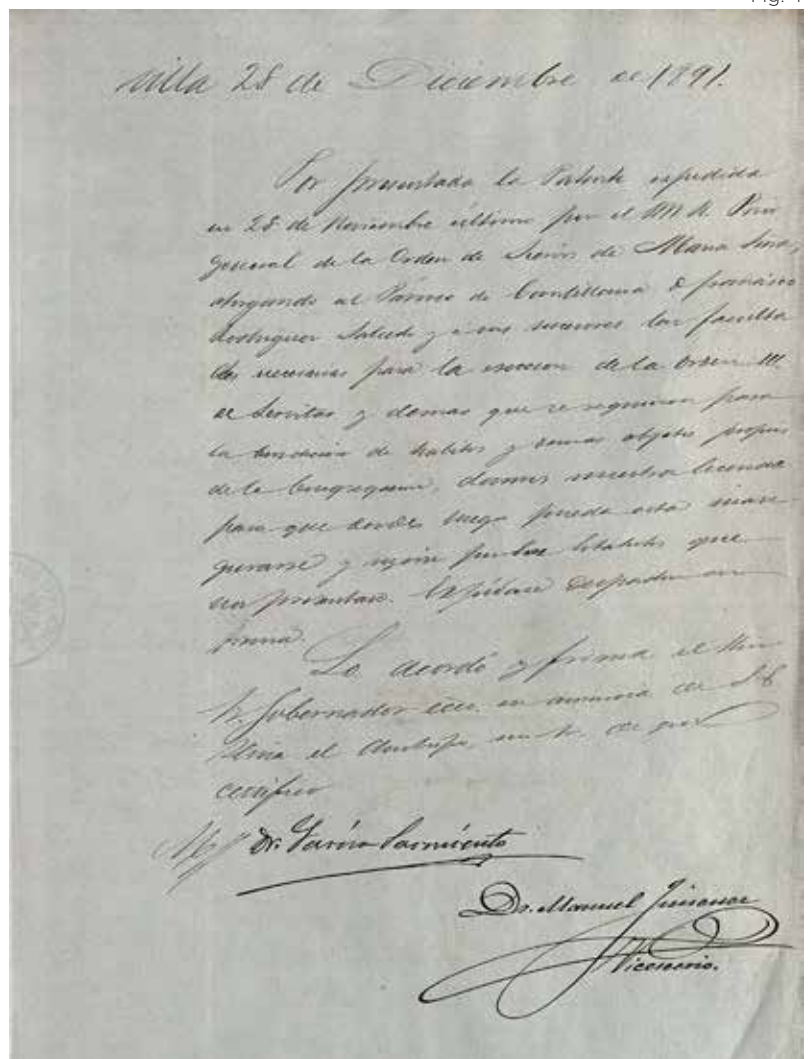 villa 28 de Diciembre de 1891.
Por presentada la Patente expedida
en 28 de Noviembre último por el M. R. Prior
general de la Orden de Siervos de Maria Sma,
otorgando al Párroco de Cantillana D. Francisco
Rodriguez Salcedo y á sus sucesores las faculta
des necesarias para la ereccion de la Orden III.
de Servitas y demas que se requieren para
la bendicion de habitos y demas objetos propios
de la Congregacion, damos nuestra licencia
para que desde luego pueda esta inau-
gurarse y regirse por los Estatutos que
han presentado. Expídase despacho en
forma.
Lo acordó y firma el
Sr. Gobernador ecco. en ausencia de S. E.
Ilma el Arzobispo mi Sr. de que
certifico
Dr. Sarmiento
Dr. Manuel Jimenez
Vicesecrio.